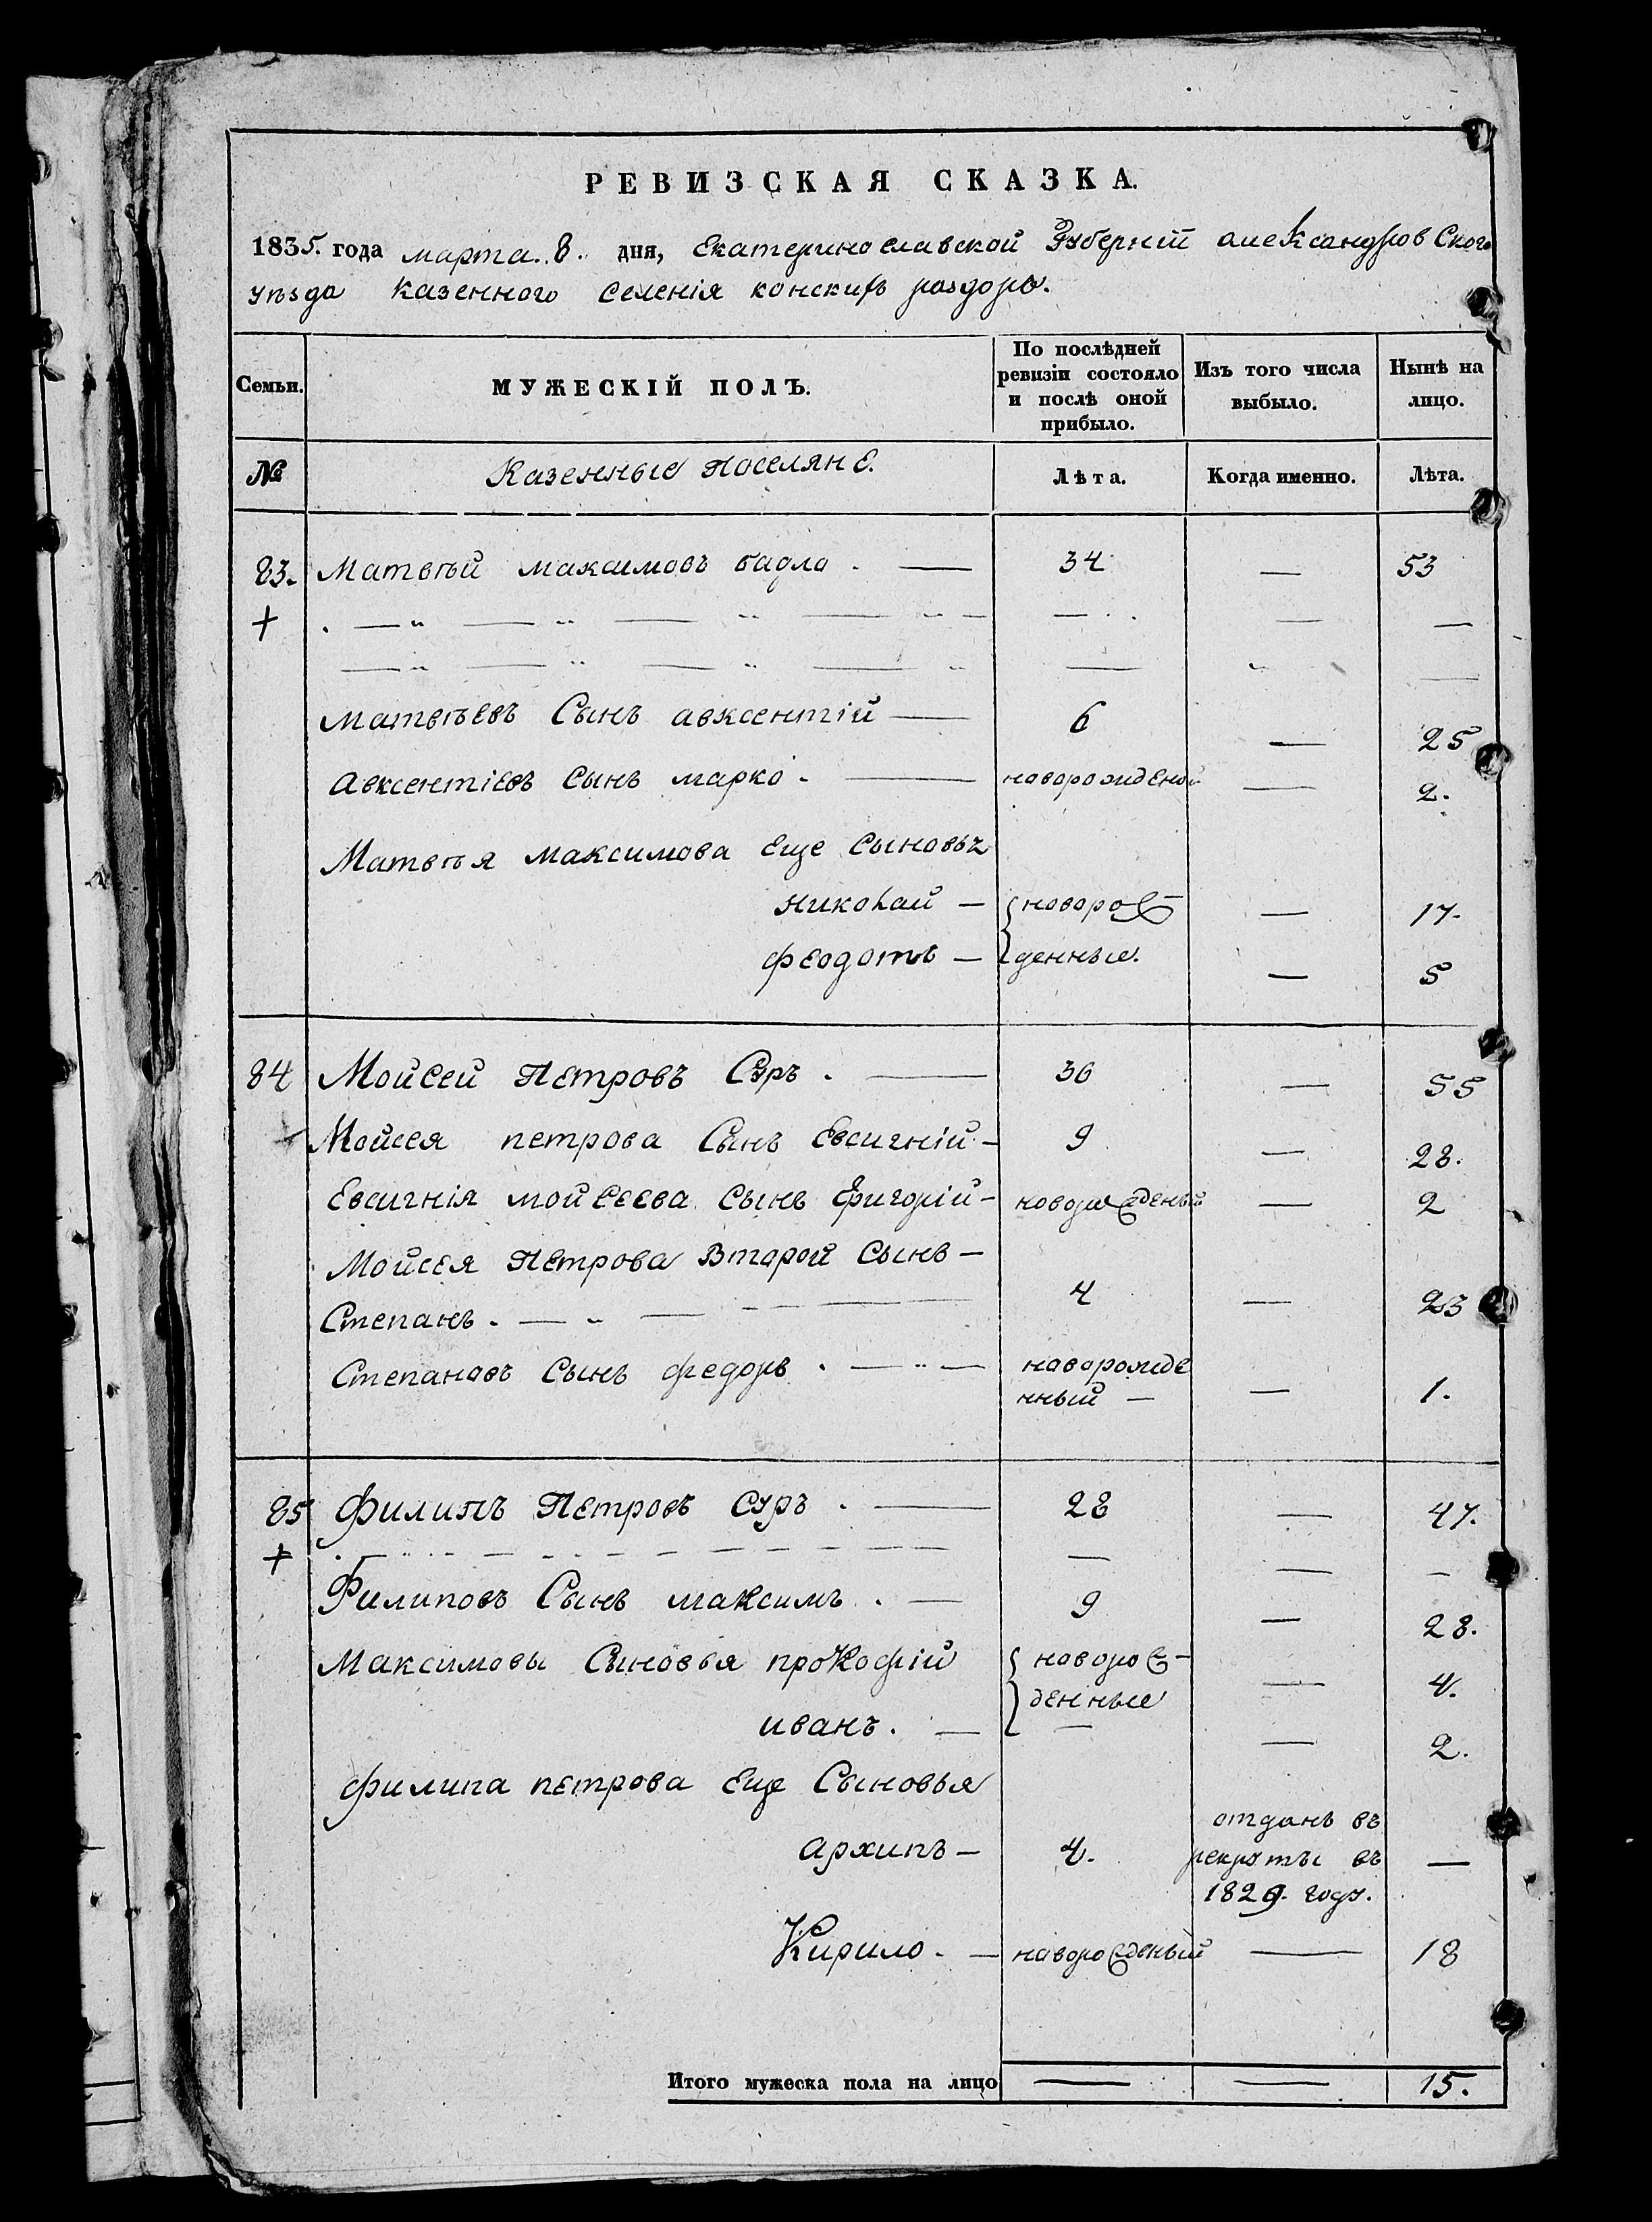 РЕВИЗСКАЯ СКАЗКА.
1835. года марта. 8. дня, Екатеринославской Губерніи александровСкого
уѣзда казенного селенія конскихъ раздоръ.
Семьи. МУЖЕСКІЙ ПОЛЪ. По послѣдней ревизіи состояло и послѣ оной прибыло. Изъ того числа выбыло. Нынѣ на лицо.
№ Казенные Поселяне. Лѣта. Когда именно. Лѣта.
83. Матвѣй максимовъ бадло. — 34 — 53
+
Матвѣевъ Сынъ авксентій — 6 — 25
Авксентіевъ сынъ марко. — новорожденой — 2.
Матвѣя максимова еще сыновья
николай — { новорож- — 17.
феодотъ — денные. — 5
84 Мойсей Петровъ Сѹръ. — 36 — 55
Мойсея петрова Сынъ Евсигній — 9 — 28.
Евсигнія мойсеева сынъ григорій — новорожденый — 2
Мойсея Петрова Второй сынъ —
Степанъ. — 4 — 23
Степановъ Сынъ федоръ. — новорожде
нный — — 1.
85 Филипъ Петровъ сѹръ. — 28 — 47.
+
Филиповъ Сынъ максимъ. — 9 — 28.
Максимовы Сыновья прокофій { новорож- — 4.
денные
иванъ. — — — 2.
филипа петрова еще Сыновья
архипъ — 4. отданъ въ рекруты въ 1829. году. —
Кирило. — новорожденый — 18
Итого мужеска пола на лицо — — 15.